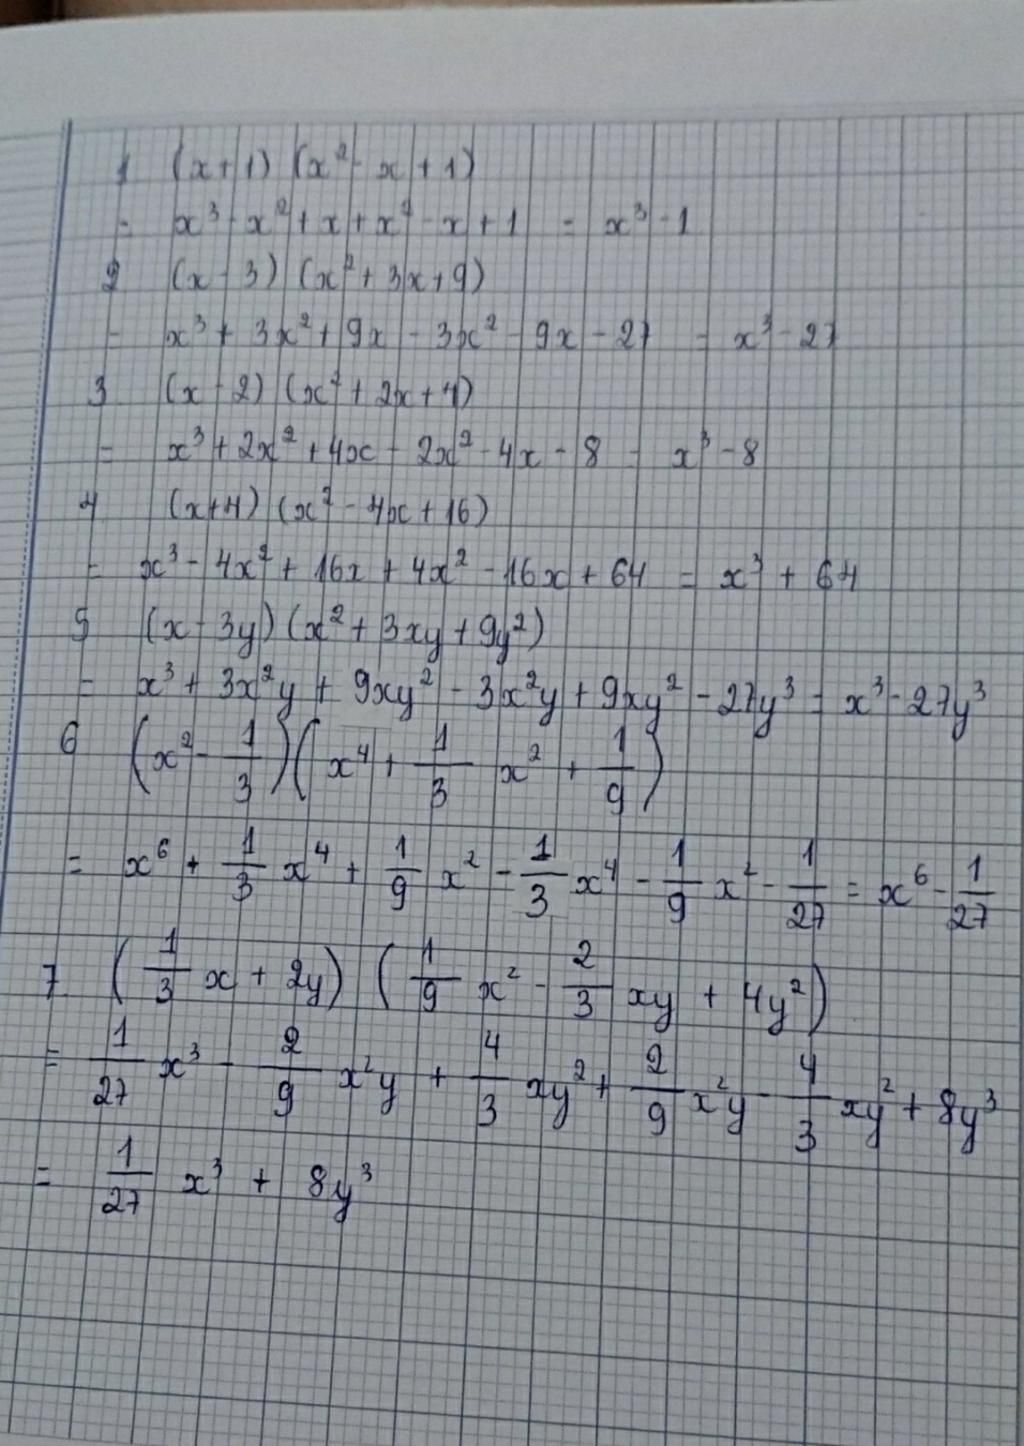 1 (x+1) (x² - x + 1)
= x³ - x² + x + x² - x + 1 = x³ - 1
2 (x - 3) (x² + 3x + 9)
= x³ + 3x² + 9x - 3x² - 9x - 27 = x³ - 27
3 (x - 2) (x² + 2x + 4)
= x³ + 2x² + 4x - 2x² - 4x - 8 = x³ - 8
4 (x+4) (x² - 4x + 16)
= x³ - 4x² + 16x + 4x² - 16x + 64 = x³ + 64
5 (x - 3y) (x² + 3xy + 9y²)
= x³ + 3x²y + 9xy² - 3x²y + 9xy² - 27y³ = x³ - 27y³
6 (x² - 1/3) (x⁴ + 1/3 x² + 1/9)
= x⁶ + 1/3 x⁴ + 1/9 x² - 1/3 x⁴ - 1/9 x² - 1/27 = x⁶ - 1/27
7. (1/3 x + 2y) (1/9 x² - 2/3 xy + 4y²)
= 1/27 x³ - 2/9 x²y + 4/3 xy² + 2/9 x²y - 4/3 xy² + 8y³
= 1/27 x³ + 8y³